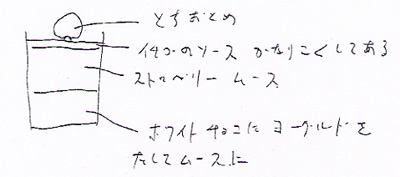 とちおとめ
イチゴのソース かなりこくしてある
ストロベリー ムース
ホワイトチョコに ヨーグルトを
たして ムースに